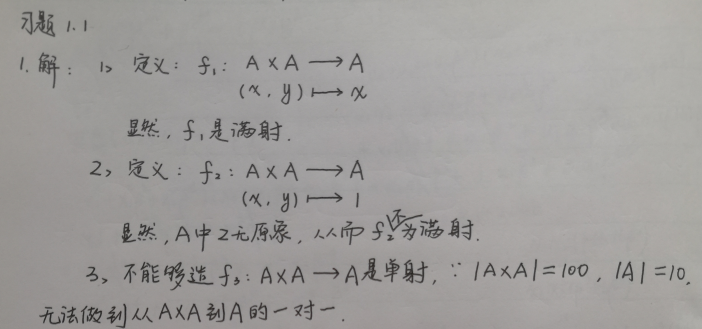 习题 1.1
1. 解: 1、定义: f₁: A × A → A
(x, y) ↦ x
显然, f₁是满射.
2、定义: f₂: A × A → A
(x, y) ↦ 1
显然, A中2无原象, 从而 f₂不为满射.
3、不能够造 f₃: A×A → A是单射, ∵ |A×A|=100, |A|=10,
无法做到从A×A到A的一对一.